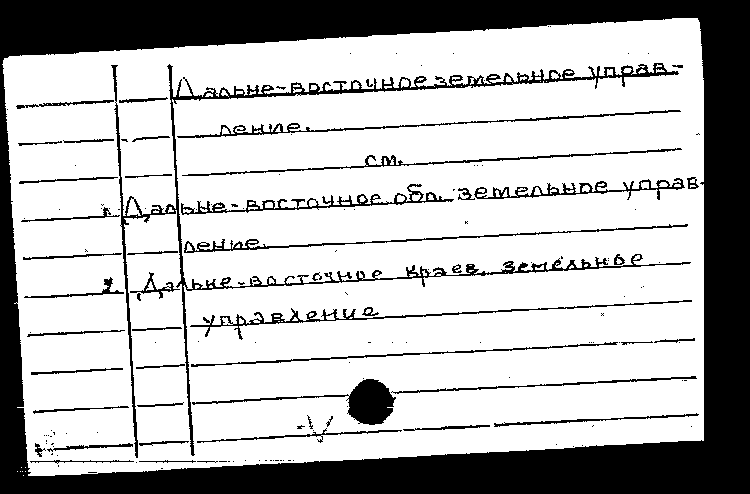 Дальне-восточное земельное управ-
ление.
см.
1. Дальне-восточное обл. земельное управ-
ление.
2. Дальне-восточное краев. земельное
управление